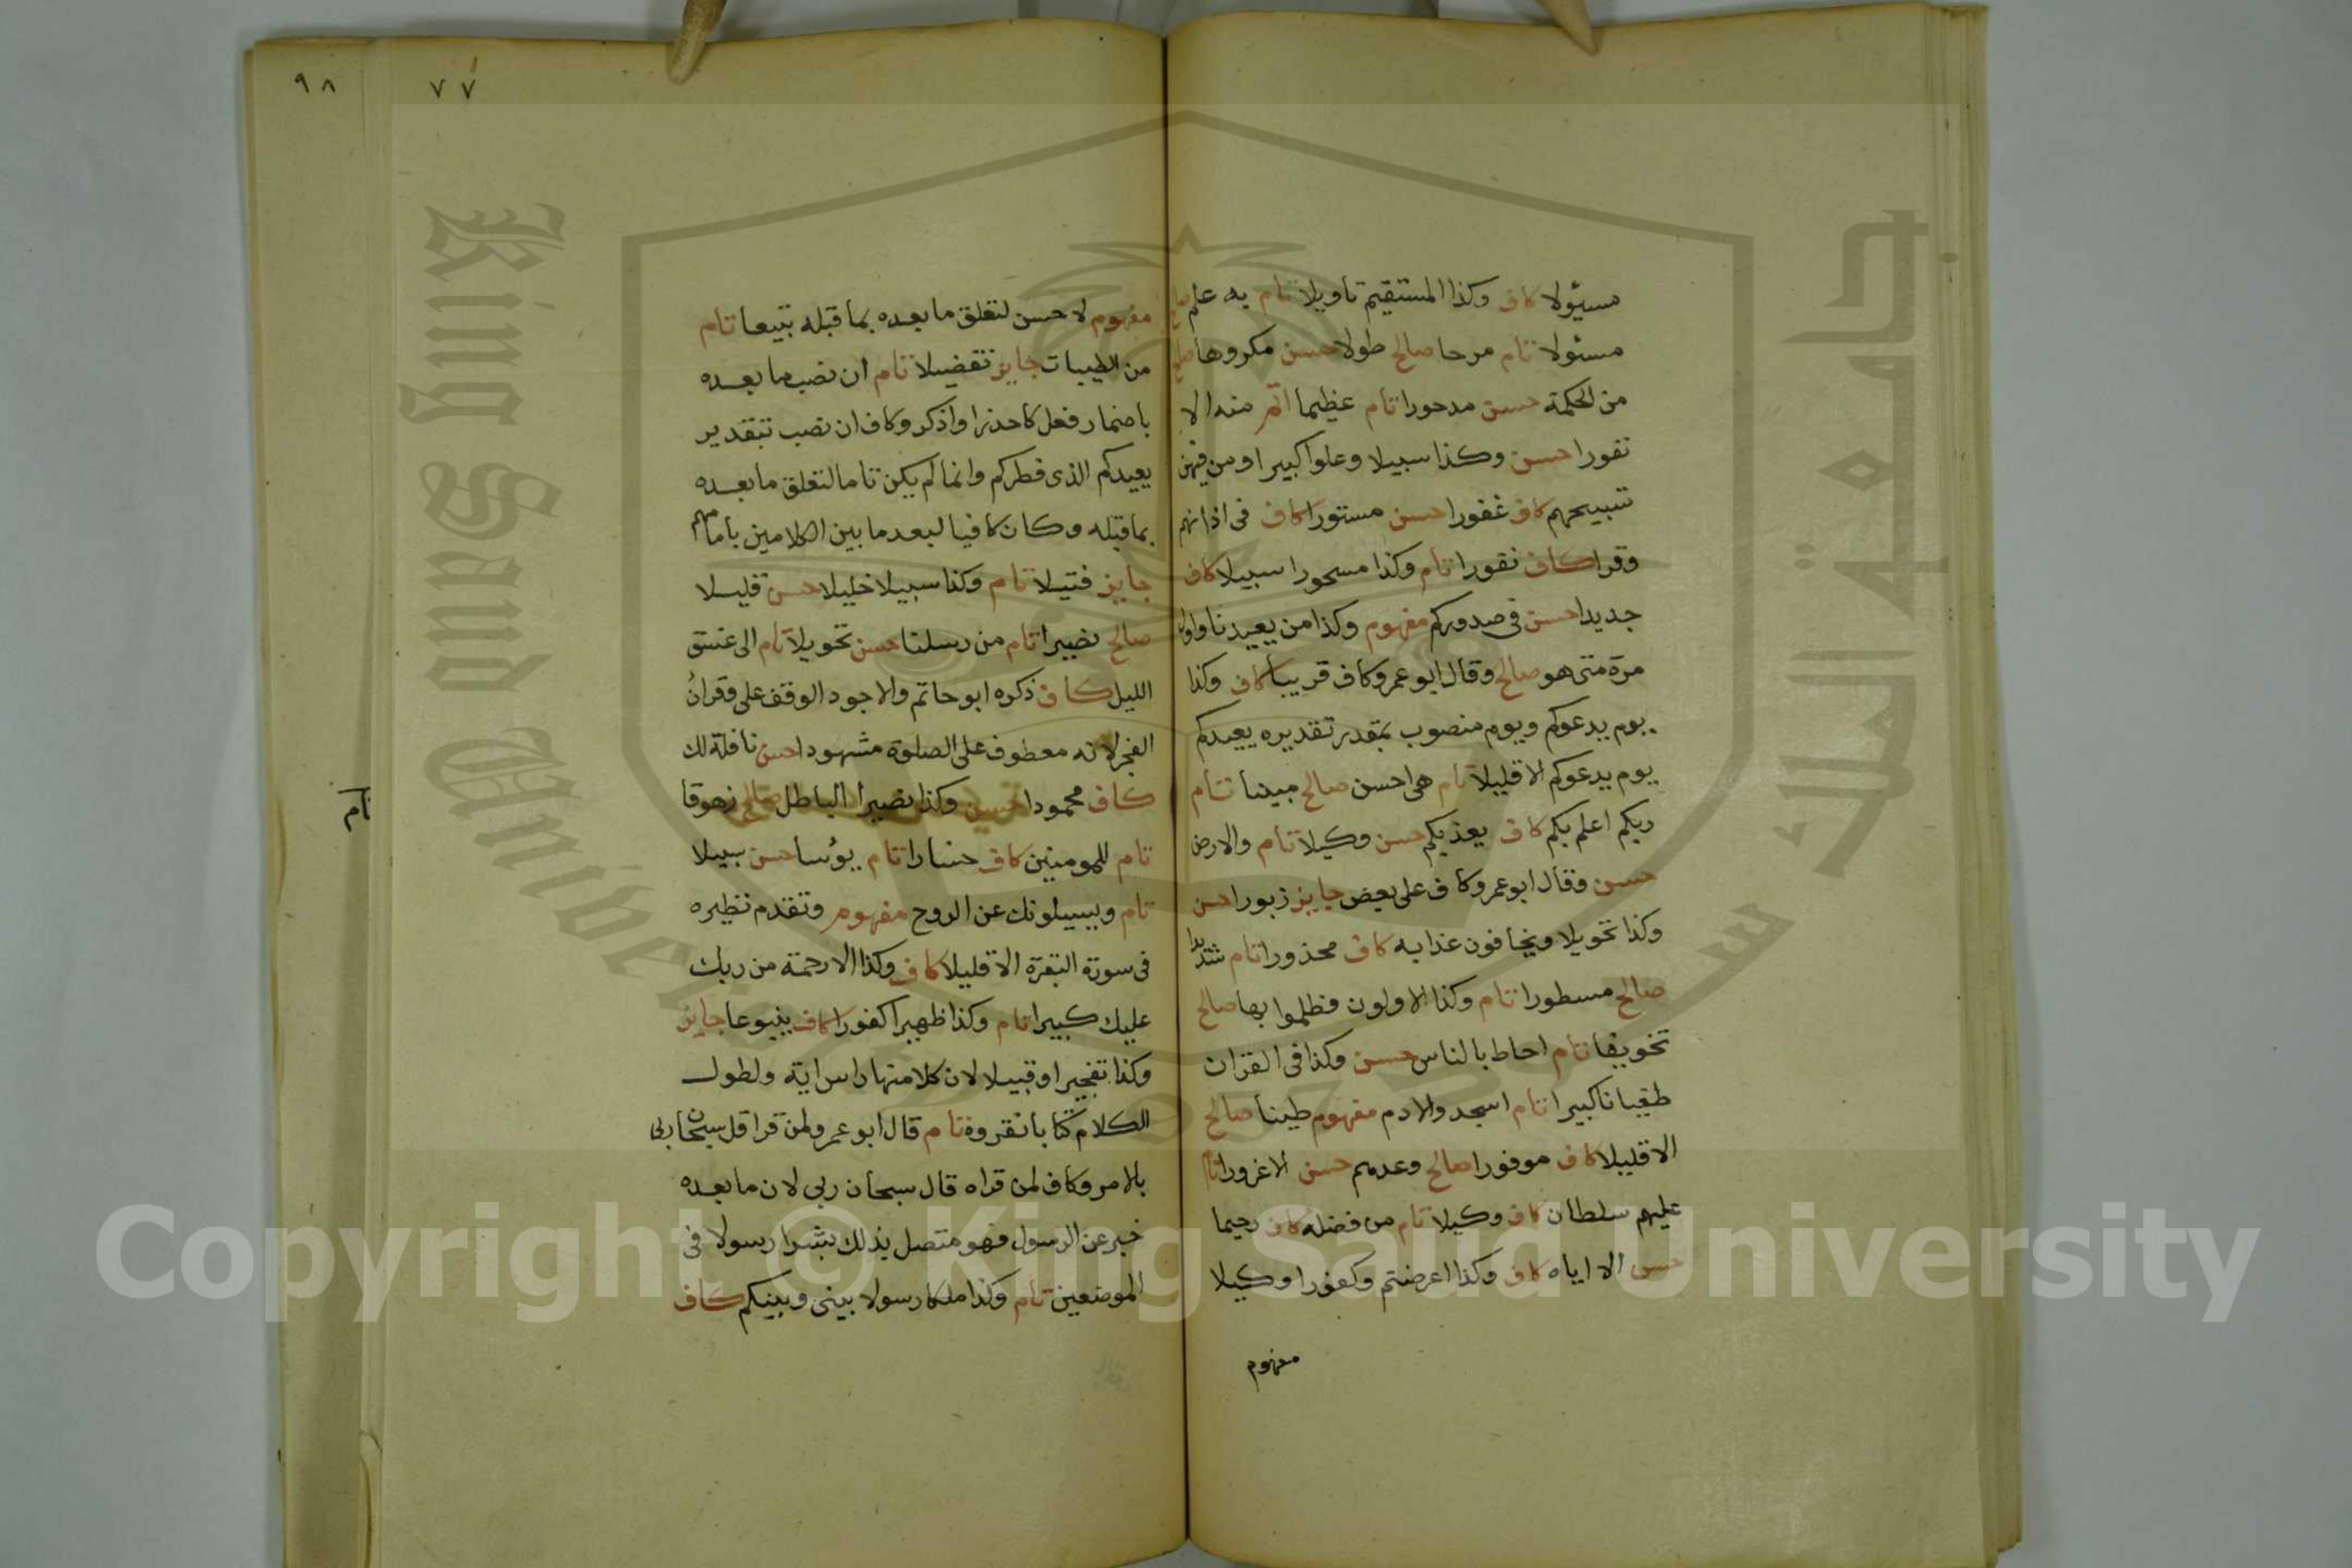 مسيؤلا كاف وكذا المستقيم تاويلا تام به علم صالح
مسئولا تام مرحا صالح طولا حسن مكروها صالح
من الحكمة حسن مدحورا تام عظيما اتم منه الا
نفورا حسن وكذا سبيلا وعلوا كبيرا ومن فيهن
تسبيحهم كاف غفورا حسن مستورا كاف في اذانهم
وقرا كاف نفورا تام وكذا مسحورا سبيلا كاف
جديدا حسن في صدوركم مفهوم وكذا من يعيدنا واول
مرة متى هو صالح وقال ابو عمرو كاف قريبا كاف وكذا
يوم يدعوكم ويوم منصوب بمقدر تقديره يعيدكم
يوم يدعوكم الا قليلا تام هي احسن صالح مبينا تام
ربكم اعلم بكم كاف يعذبكم حسن وكيلا تام والارض
حسن وقال ابو عمرو كاف على بعض جايز زبورا حسن
وكذا تحويلا ويخافون عذابه كاف محذورا تام شديدا
صالح مسطورا تام وكذا الاولون فظلموا بها صالح
تخويفا تام احاط بالناس حسن وكذا في القران
طغيانا كبيرا تام اسجدوا لادم مفهوم طينا صالح
الا قليلا كاف موفورا صالح وعدهم حسن الا غرورا تام
عليهم سلطان كاف وكيلا تام من فضله كاف رحيما
حسن الا اياه كاف وكذا اعرضتم وكفورا وكيلا
مفهوم
٩٨
٧٧
مفهوم لا حسن لتعلق ما بعده بما قبله تبيعا تام
من الطيبات جايز تفضيلا تام ان نصب ما بعده
باضمار فعل كاحذروا واذكر وكاف ان نصب بتقدير
يعيدكم الذي فطركم وانما لم يكن تاما لتعلق ما بعده
بما قبله وكان كافيا لبعد ما بين الكلامين بامامهم
جايز فتيلا تام وكذا سبيلا خليلا حسن قليلا
صالح نصيرا تام من رسلنا حسن تحويلا تام الى غسق
الليل كاف ذكره ابو حاتم والاجود الوقف على وقران
الفجر لانه معطوف على الصلوة مشهودا حسن نافلة لك
كاف محمودا حسن وكذا نصيرا الباطل صالح زهوقا
تام للمومنين كاف خسارا تام يؤسا حسن سبيلا
تام ويسيلونك عن الروح مفهوم وتقدم نظيره
في سورة البقرة الا قليلا كاف وكذا الا رحمة من ربك
عليك كبيرا تام وكذا ظهيرا كفورا كاف ينبوعا جايز
وكذا تفجيرا وقبيلا لان كلا منها راس اية ولطول
الكلام كتابا نقروه تام قال ابو عمرو لمن قرا قل سبحان ربي
بالامر وكاف لمن قراه قال سبحان ربي لان ما بعده
خبر عن الرسول فهو متصل بذلك بشرا رسولا في
الموضعين تام وكذا ملكا رسولا بيني وبينكم كاف
King Saud University
جامعة الملك سعود
Copyright © King Saud University